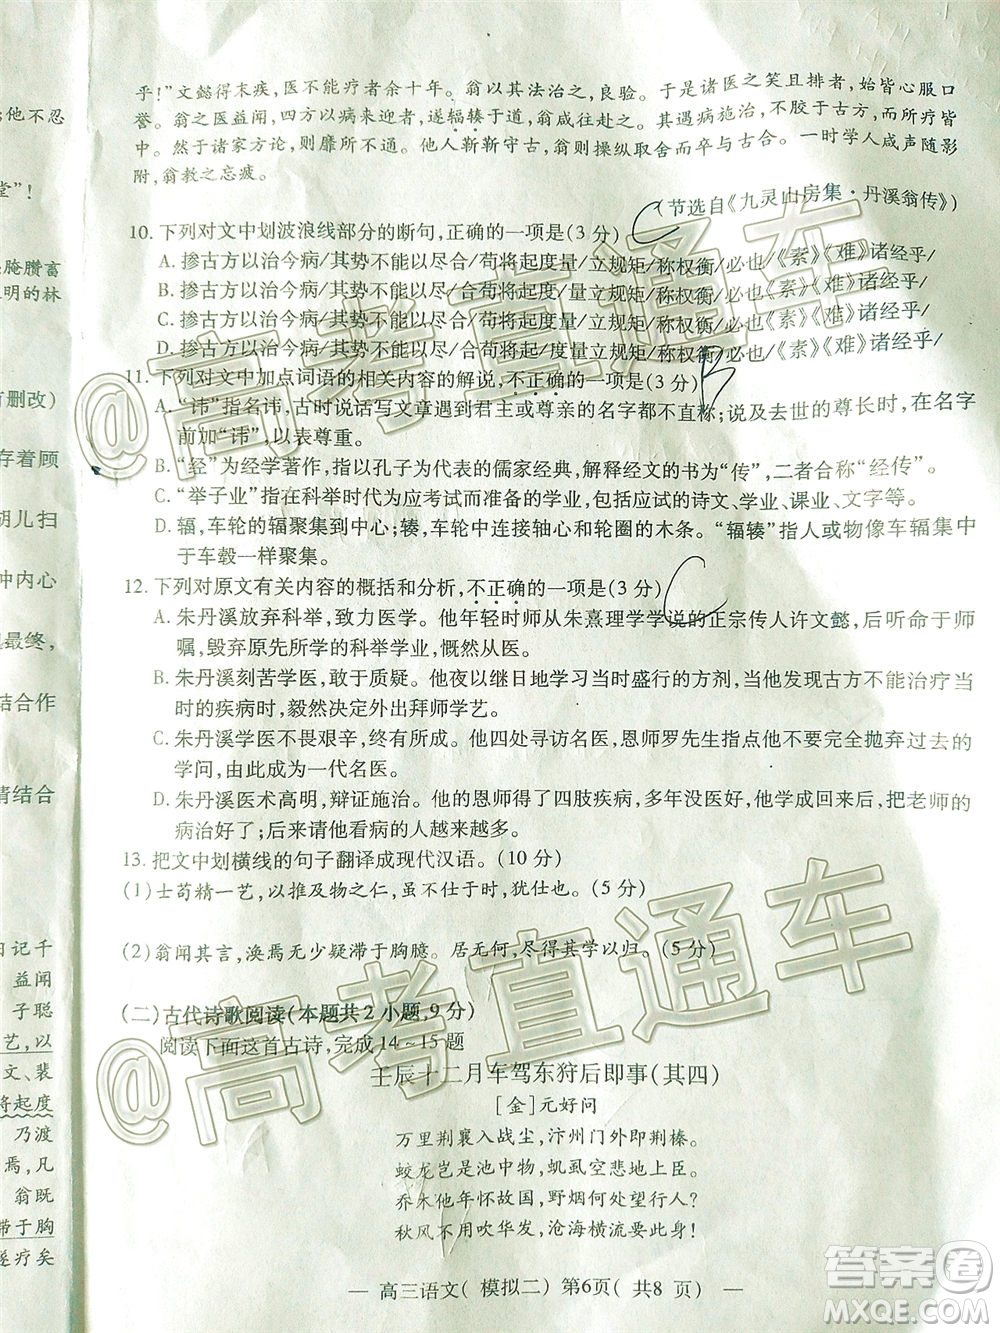 他不忍
堂”！
腌臜畜
明的林
有删改）
存着顾
胡儿扫
冲内心
最终，
结合作
情结合
日记千
益闻
子聪
艺，以
文、裴
将起度
乃渡
焉，凡
翁既
带于胸
遂疗矣
乎！”文懿得末疾，医不能疗者余十年。翁以其法治之，良验。于是诸医之笑且排者，始皆心服口
誉。翁之医益闻，四方以病来迎者，遂辐辏于道，翁咸往赴之。其遇病施治，不胶于古方，而所疗皆中
然于诸家方论，则靡所不通。他人靳靳守古，翁则操纵取舍而卒与古合。一时学人咸声随影
附，翁教之忘疲。
（节选自《九灵山房集·丹溪翁传》）
10. 下列对文中划波浪线部分的断句，正确的一项是（3 分） C
A. 掺古方以治今病/其势不能以尽合/苟将起度量/立规矩/称权衡/必也/《素》《难》诸经乎/
B. 掺古方以治今病/其势不能以尽/合苟将起度/量立规矩/称权衡/必也/《素》《难》诸经乎/
C. 掺古方以治今病/其势不能以尽合/苟将起度量/立规矩/称权衡/必也/《素》《难》诸经乎/
D. 掺古方以治今病/其势不能以尽合/苟将起度/量立规矩/称权衡/必也/《素》《难》诸经乎/
11. 下列对文中加点词语的相关内容的解说，不正确的一项是（3 分） B
A. “讳”指名讳，古时说话写文章遇到君主或尊亲的名字都不直称；说及去世的尊长时，在名字
前加“讳”，以表尊重。
B. “经”为经学著作，指以孔子为代表的儒家经典，解释经文的书为“传”，二者合称“经传”。
C. “举子业”指在科举时代为应考试而准备的学业，包括应试的诗文、学业、课业、文字等。
D. 辐，车轮的辐聚集到中心；辏，车轮中连接轴心和轮圈的木条。“辐辏”指人或物像车辐集中
于车毂一样聚集。
12. 下列对原文有关内容的概括和分析，不正确的一项是（3 分） C
A. 朱丹溪放弃科举，致力医学。他年轻时师从朱熹理学学说的正宗传人许文懿，后听命于师
嘱，毁弃原先所学的科举学业，慨然从医。
B. 朱丹溪刻苦学医，敢于质疑。他夜以继日地学习当时盛行的方剂，发现古方不能治疗当时
的疾病时，毅然决定外出拜师学艺。
C. 朱丹溪学医不畏艰辛，终有所成。他四处寻访名医，恩师罗先生指点他要完全抛弃过去的
学问，最终成为一代名医。
D. 朱丹溪医术高明，辩证施治。他的恩师得了四肢疾病，多年没有医治好，他把老师的
病治好了；后来请他看病的人越来越多。
13. 把文中划横线的句子翻译成现代汉语。（10 分）
（1）士苟精一艺，以推及物之仁，虽不仕于时，犹仕也。（5 分）
（2）翁闻其言，涣焉无少疑滞于胸臆。居无何，尽得其学以归。（5 分）
（二）古代诗歌阅读（本题共2 小题，9 分）
阅读下面这首古诗，完成14～15题
壬辰十二月车驾东狩后即事（其四）
［金］元好问
万里荆襄入战尘，汴州门外即荆榛。
蛟龙岂是池中物，虮虱空悲地上臣。
乔木他年怀故国，野烟何处望行人？
秋风不用吹华发，沧海横流要此身！
— 高三语文（ 模拟二） 第6页（ 共8 页） —
@高考直通车
@高考直通车
答案圈
MXQE.COM